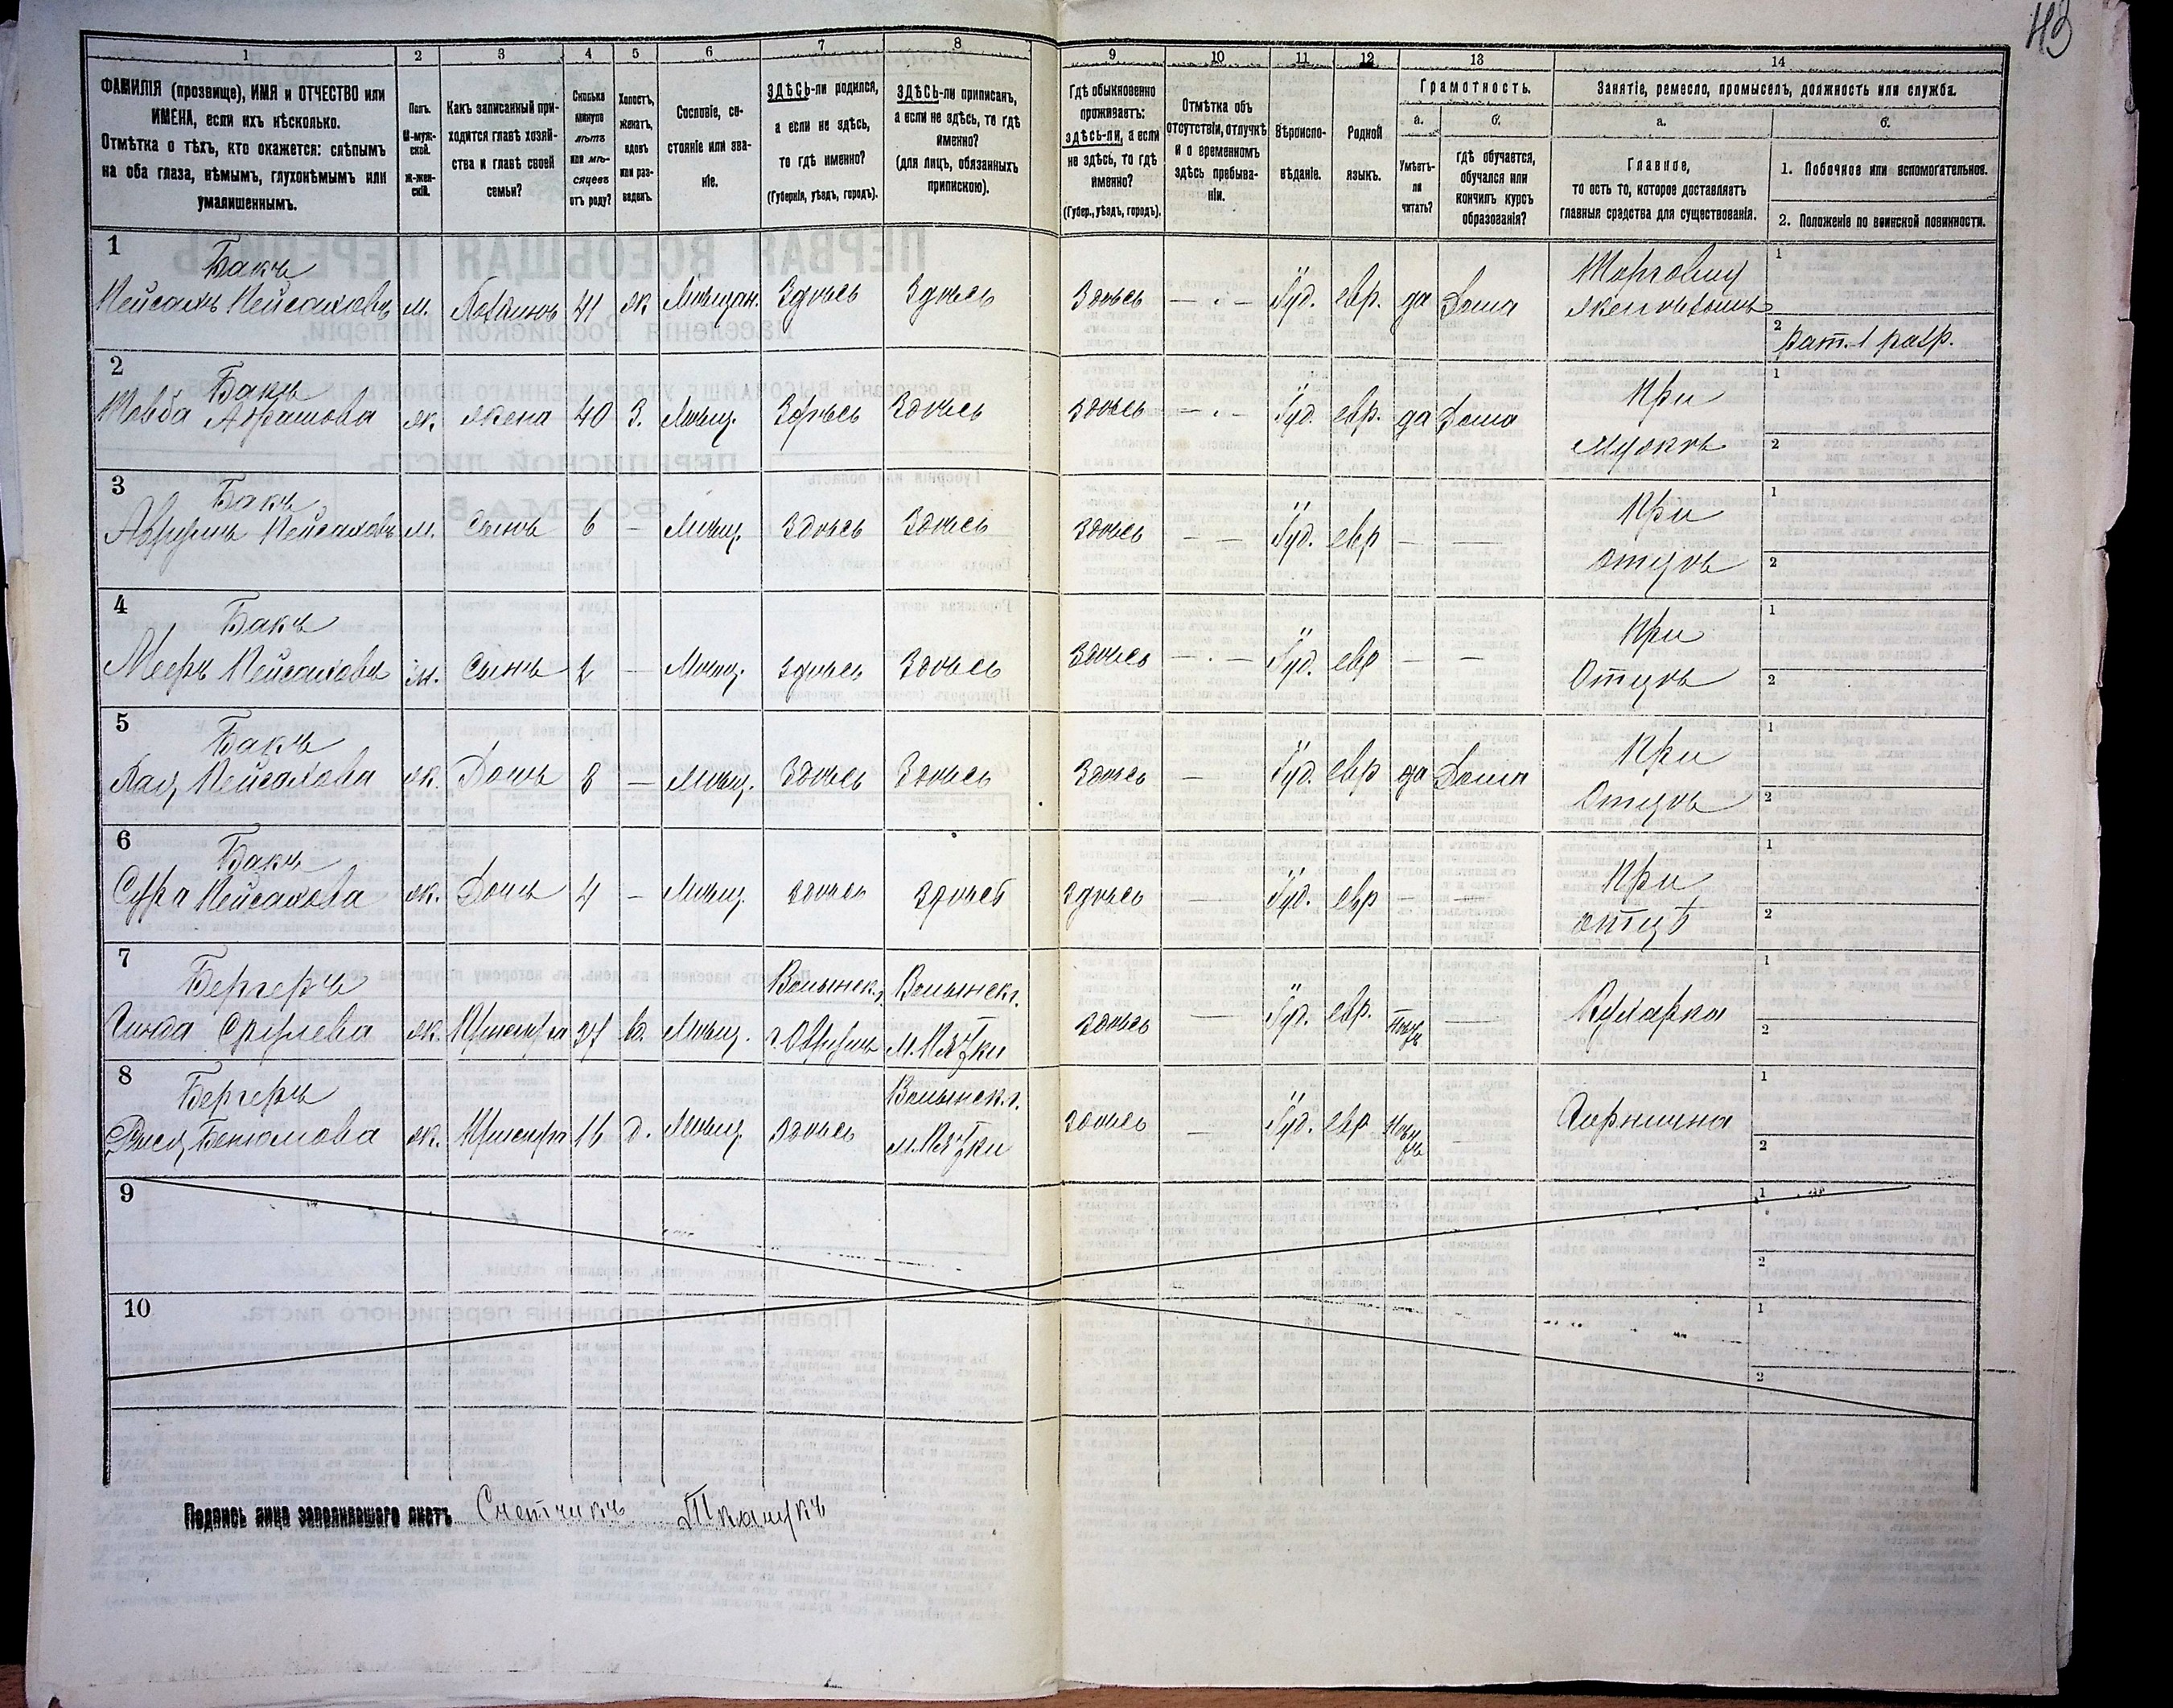 43
1 2 3 4 5 6 7 8 9 10 11 12 13 14
ФАМИЛІЯ (прозвище), ИМЯ и ОТЧЕСТВО или
ИМЕНА, если ихъ нѣсколько.
Отмѣтка о тѣхъ, кто окажется: слѣпымъ
на оба глаза, нѣмымъ, глухонѣмымъ или
умалишеннымъ.
Полъ.
М-муж-
ской.
Ж-жен-
скій.
Какъ записанный при-
ходится главѣ хозяй-
ства и главѣ своей
семьи?
Сколько
минуло
лѣтъ
или мѣ-
сяцевъ
отъ роду?
Холостъ,
женатъ,
вдовъ
или раз-
веденъ.
Сословіе, со-
стояніе или зва-
ніе.
ЗДѢСЬ-ли родился,
а если не здѣсь,
то гдѣ именно?
(Губернія, уѣздъ, городъ).
ЗДѢСЬ-ли приписанъ,
а если не здѣсь, то гдѣ
именно?
(для лицъ, обязанныхъ
припискою).
Гдѣ обыкновенно
проживаетъ:
ЗДѢСЬ-ли, а если
не здѣсь, то гдѣ
именно?
(Губер., уѣздъ, городъ).
Отмѣтка объ
отсутствіи, отлучкѣ
и о временномъ
здѣсь пребыва-
ніи.
Вѣроиспо-
вѣданіе.
Родной
языкъ.
Грамотность.
а.
Умѣетъ-
ли
читать?
б.
гдѣ обучается,
обучался или
кончилъ курсъ
образованія?
Занятіе, ремесло, промыселъ, должность или служба.
а.
Главное,
то есть то, которое доставляетъ
главныя средства для существованія.
б.
1. Побочное или вспомогательное.
2. Положеніе по воинской повинности.
1
Бакъ
Пейсахъ Пейсаховъ м. Хозяинъ 41 ж Мѣщан. Здѣсь Здѣсь Здѣсь — · — Іуд. евр. да Дома
Торговец
1
2 рат. 1 разр.
2
Бакъ
Абрамова ж. жена 40 З. Мѣщ. Здѣсь Здѣсь Здѣсь — · — Іуд. евр. да Дома
При
мужѣ
1
2
3
Бакъ
Аврумъ Пейсаховъ м. Сынъ 6 — Мѣщ. Здѣсь Здѣсь Здѣсь — — Іуд. евр — —
При
отцѣ
1
2
4
Бакъ
Мееръ Пейсаховъ м. Сынъ 2 — Мѣщ. Здѣсь Здѣсь Здѣсь — · — Іуд. евр — —
При
Отцѣ
1
2
5
Бакъ
Пейсахова ж. Дочь 8 — Мѣщ. Здѣсь Здѣсь Здѣсь — Іуд. евр да Дома
При
Отцѣ
1
2
6
Бакъ
Сура Пейсахова ж. Дочь 4 — Мѣщ. Здѣсь Здѣсь Здѣсь — Іуд. евр — —
При
отцѣ
1
2
7
Бергеръ
Срулева ж. Прислуга 37 в. Мѣщ. Волынск. г. Волынск. г. м. Здѣсь — Іуд. евр. —
Кухарка
1
2
8
Бергеръ
ж. Прислуга 16 д. Мѣщ. Здѣсь Волынск. г. м. Здѣсь — Іуд. евр —
Горнична
1
2
9
1
2
10
1
2
Подпись лица заполнявшаго листъ Счетчикъ Ткачукъ